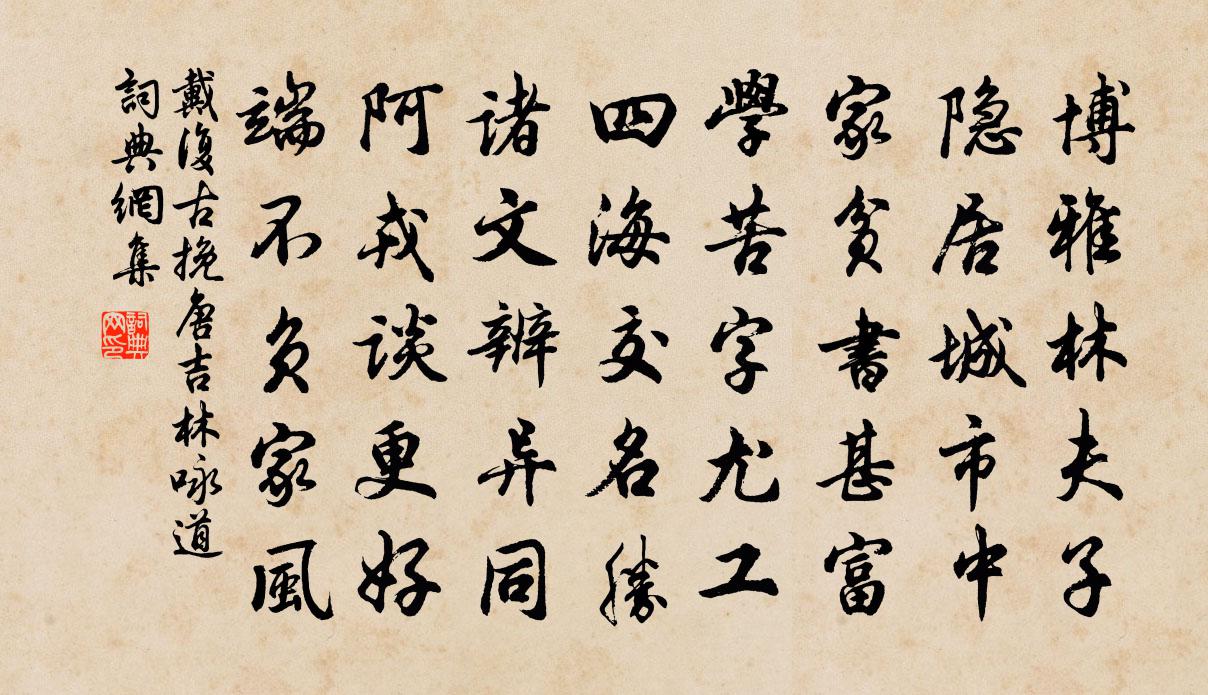 博雅林夫子
隐居城市中
家贫書甚富
學苦字尤工
四海交名勝
诸文辨异同
阿戎谈更好
端不负家風
戴復古挽唐吉林咏道
詞典網集
詞典网印